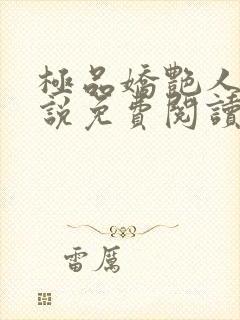 極品嬌艷人
說免費閱讀
雷厲